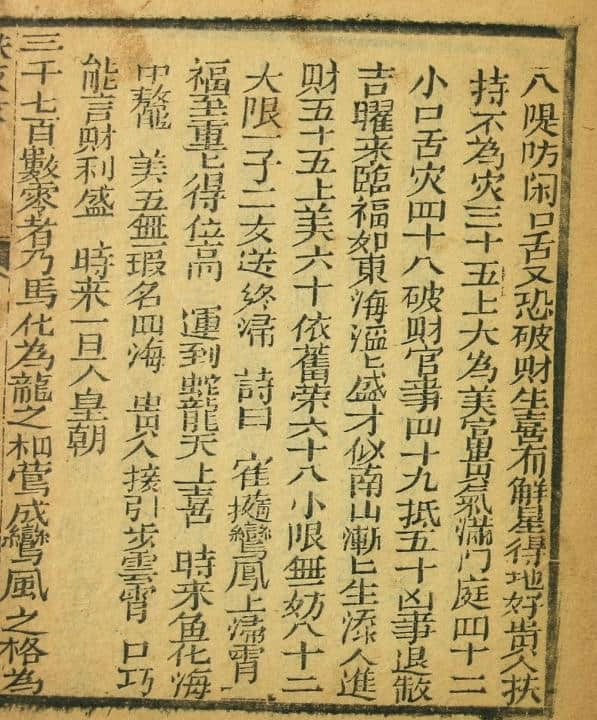 八隄防闲口舌又恐破财生喜有解星得地好贵人扶
持不為灾三十五上大為美富貴氣滿门庭四十二
小口舌灾四十八破财官事四十九抵五十凶事退散
吉曜来臨福如東海滔匕盛才似南山漸匕生添人進
财五十五上美六十依舊荣六十八小限無妨八十二
大限一子二女送终帰 詩曰 隺隨鸞鳳上帰霄
福至重匕得位高 運到蛇龍天上喜 時来鱼化海
中鰲 美五無瑕名四海 贵人接引步雲霄 口巧
能言财利盛 時来一旦入皇朝
三千七百數零者乃馬化為龍之相鶯成鸞凤之格為